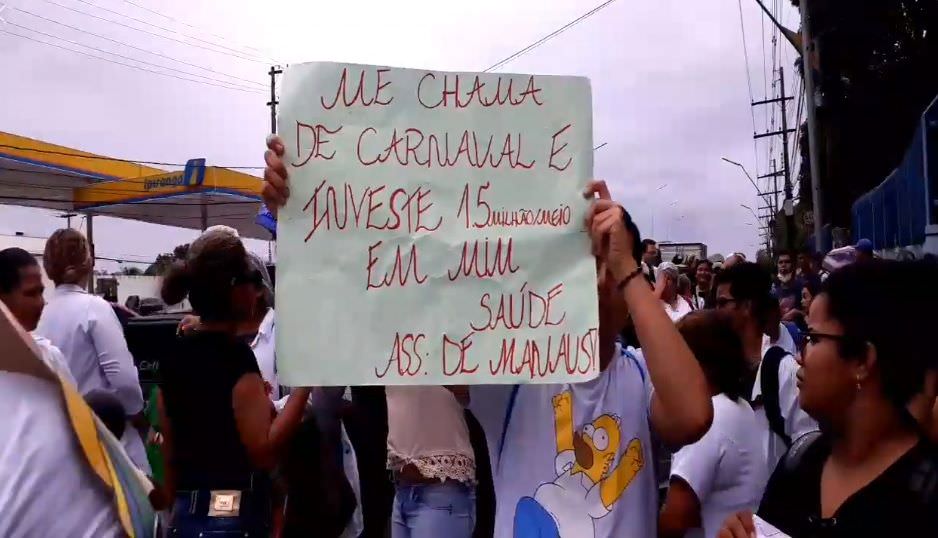 ME CHAMA
DE CARNAVAL E
INVESTE 1.5 MILHÃO/MEIO
EM MIM
SAÚDE
ASS: DE MANAUS!
ipiranga